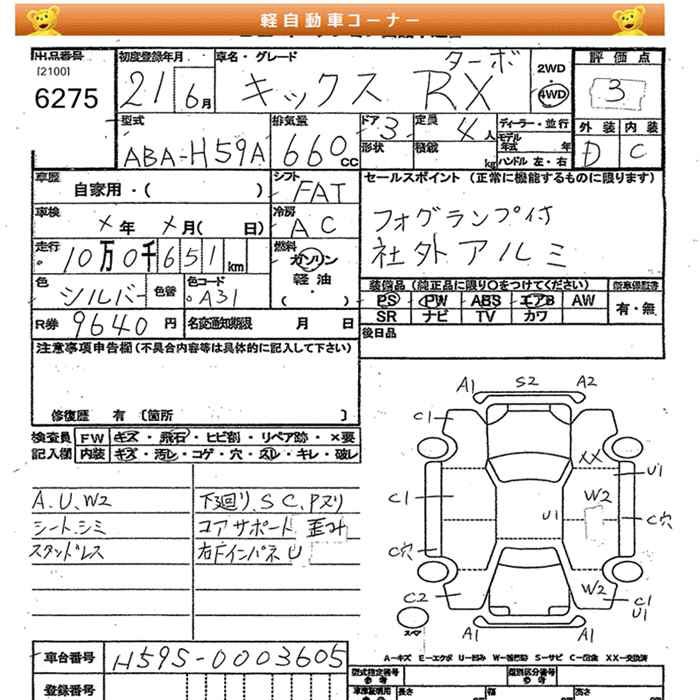 軽自動車コーナー
出品番号
[2100]
6275
初度登録年月
21 6月
車名・グレード
キックス RX ターボ
2WD
4WD
評価点
3
外装 内装
D C
型式
ABA-H59A
排気量
660cc
ドア 3
形状
定員 4人
積載 kg
ディーラー・並行
モデル年式 年
ハンドル 左・右
車歴
自家用・( )
シフト
FAT
車検
×年 ×月( 日)
冷房
AC
走行
10万0千651km
燃料
ガソリン
軽油
・( )
色
シルバー
色替
色コード
A31
R券 9640円
名変通知期限 月 日
セールスポイント (正常に機能するものに限ります)
フォグランプ付
社外アルミ
装備品(純正品に限り〇をつけてください)
PS PW ABS エアB AW
SR ナビ TV カワ
有・無
後日品
注意事項申告欄(不具合内容等は具体的に記入して下さい)
修復歴 有 〔箇所 〕
検査員
記入欄
FW キズ・飛石・ヒビ割・リペア跡・×要
内装 キズ・汚レ・コゲ・穴・スレ・キレ・破レ
A.U.W2
シート.シミ
スタッドレス
下廻り.S C.Pヌリ
コアサポート 歪み
右FインパネU
A1 S2 A2
C1
XX
U1
C1
W2
U1
C穴
C穴
C2
W2
C1
U1
スペア
A1 A1
A−キズ E−エクボ U−凹み W−補修跡 S−サビ C−腐食 XX−交換済
車台番号 H59S-0003605
登録番号
型式指定番号
参考
類別区分番号
参考
長さ 幅 高さ